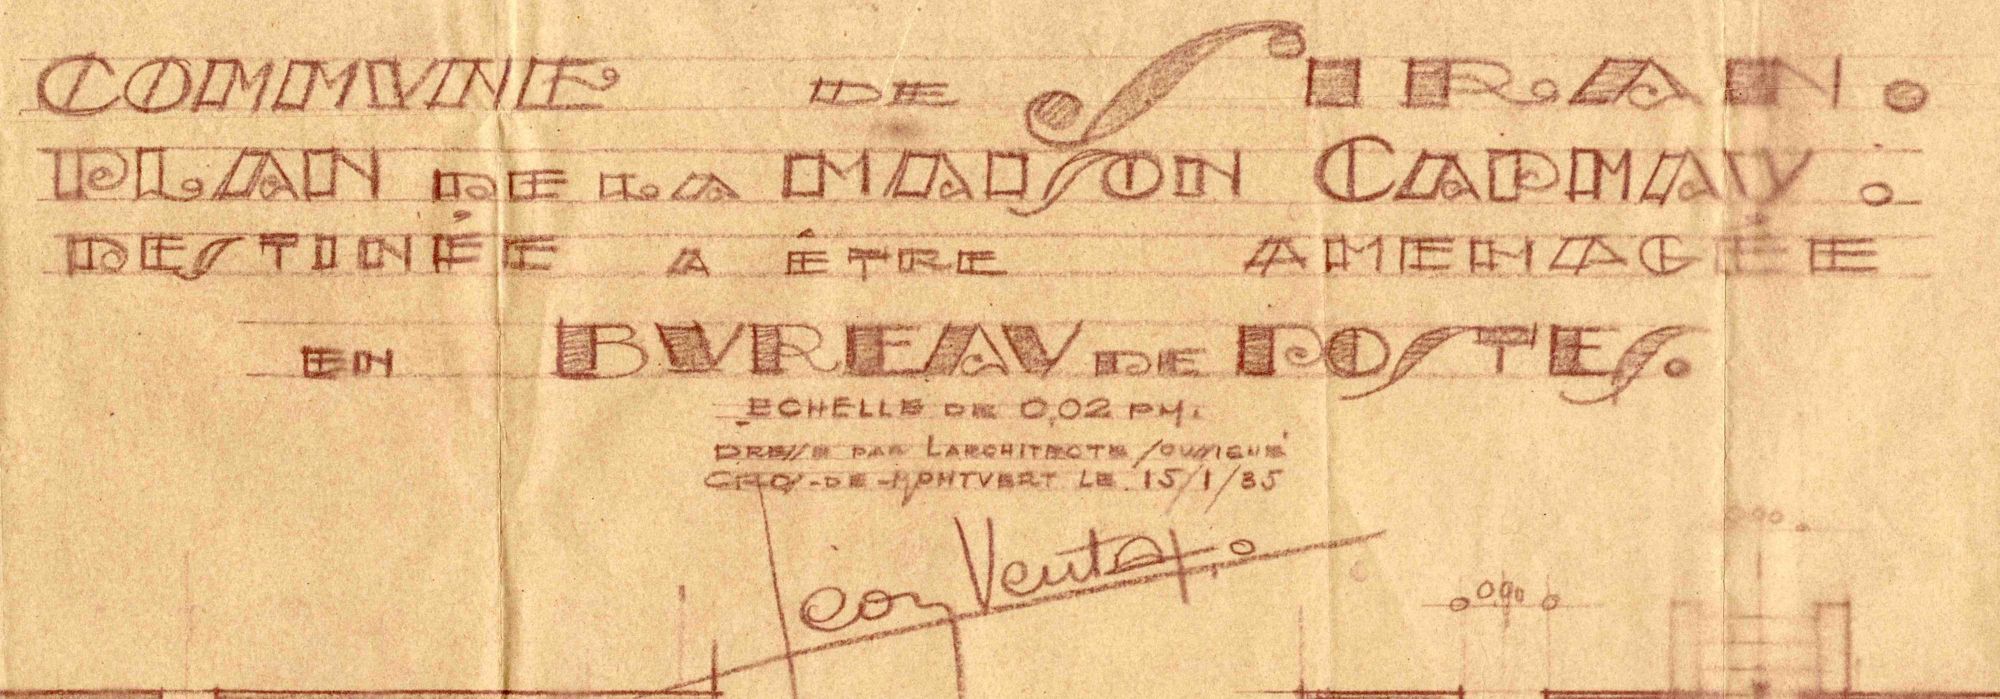 COMMVNE DE SIRAN.
PLAN DE LA MAISON CAPMAV.
DESTINÉE A ÊTRE AMENAGÉE
EN BVREAV DE POSTES.
ECHELLE DE 0,02 PM.
DRESSE PAR LARCHITECTE SOUSIGNÉ
CROS-DE-MONTVERT LE 15/1/35
0.90
0.90